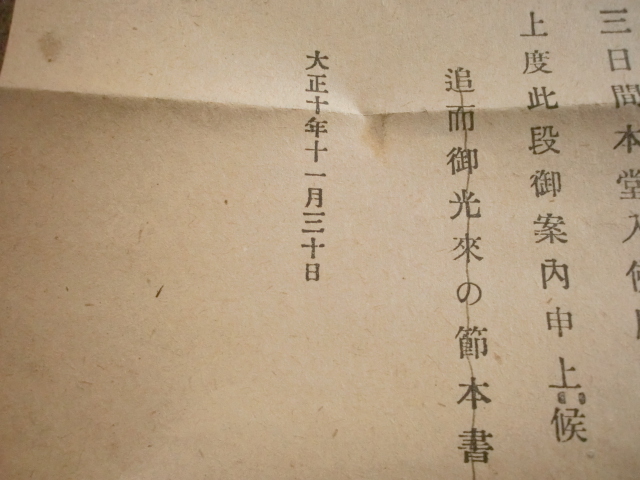 三日間本堂入佛
上度此段御案内申上候
追而御光來の節本書
大正十年十一月三十日